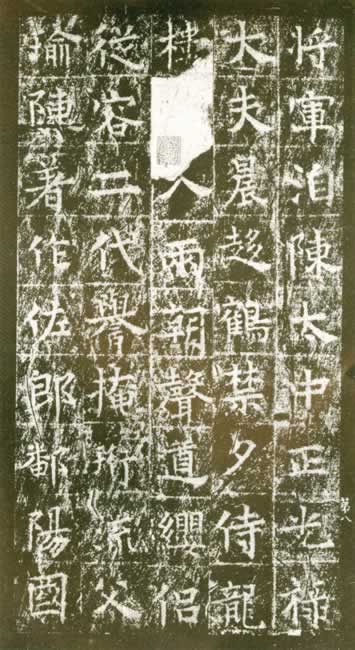 将軍洎陳太中正光祿
大夫晨趍鶴禁夕侍龍
入兩朝聲遒纓侶
從容二代譽掩珩流父
揄陳著作佐郎鄱陽酉
第八